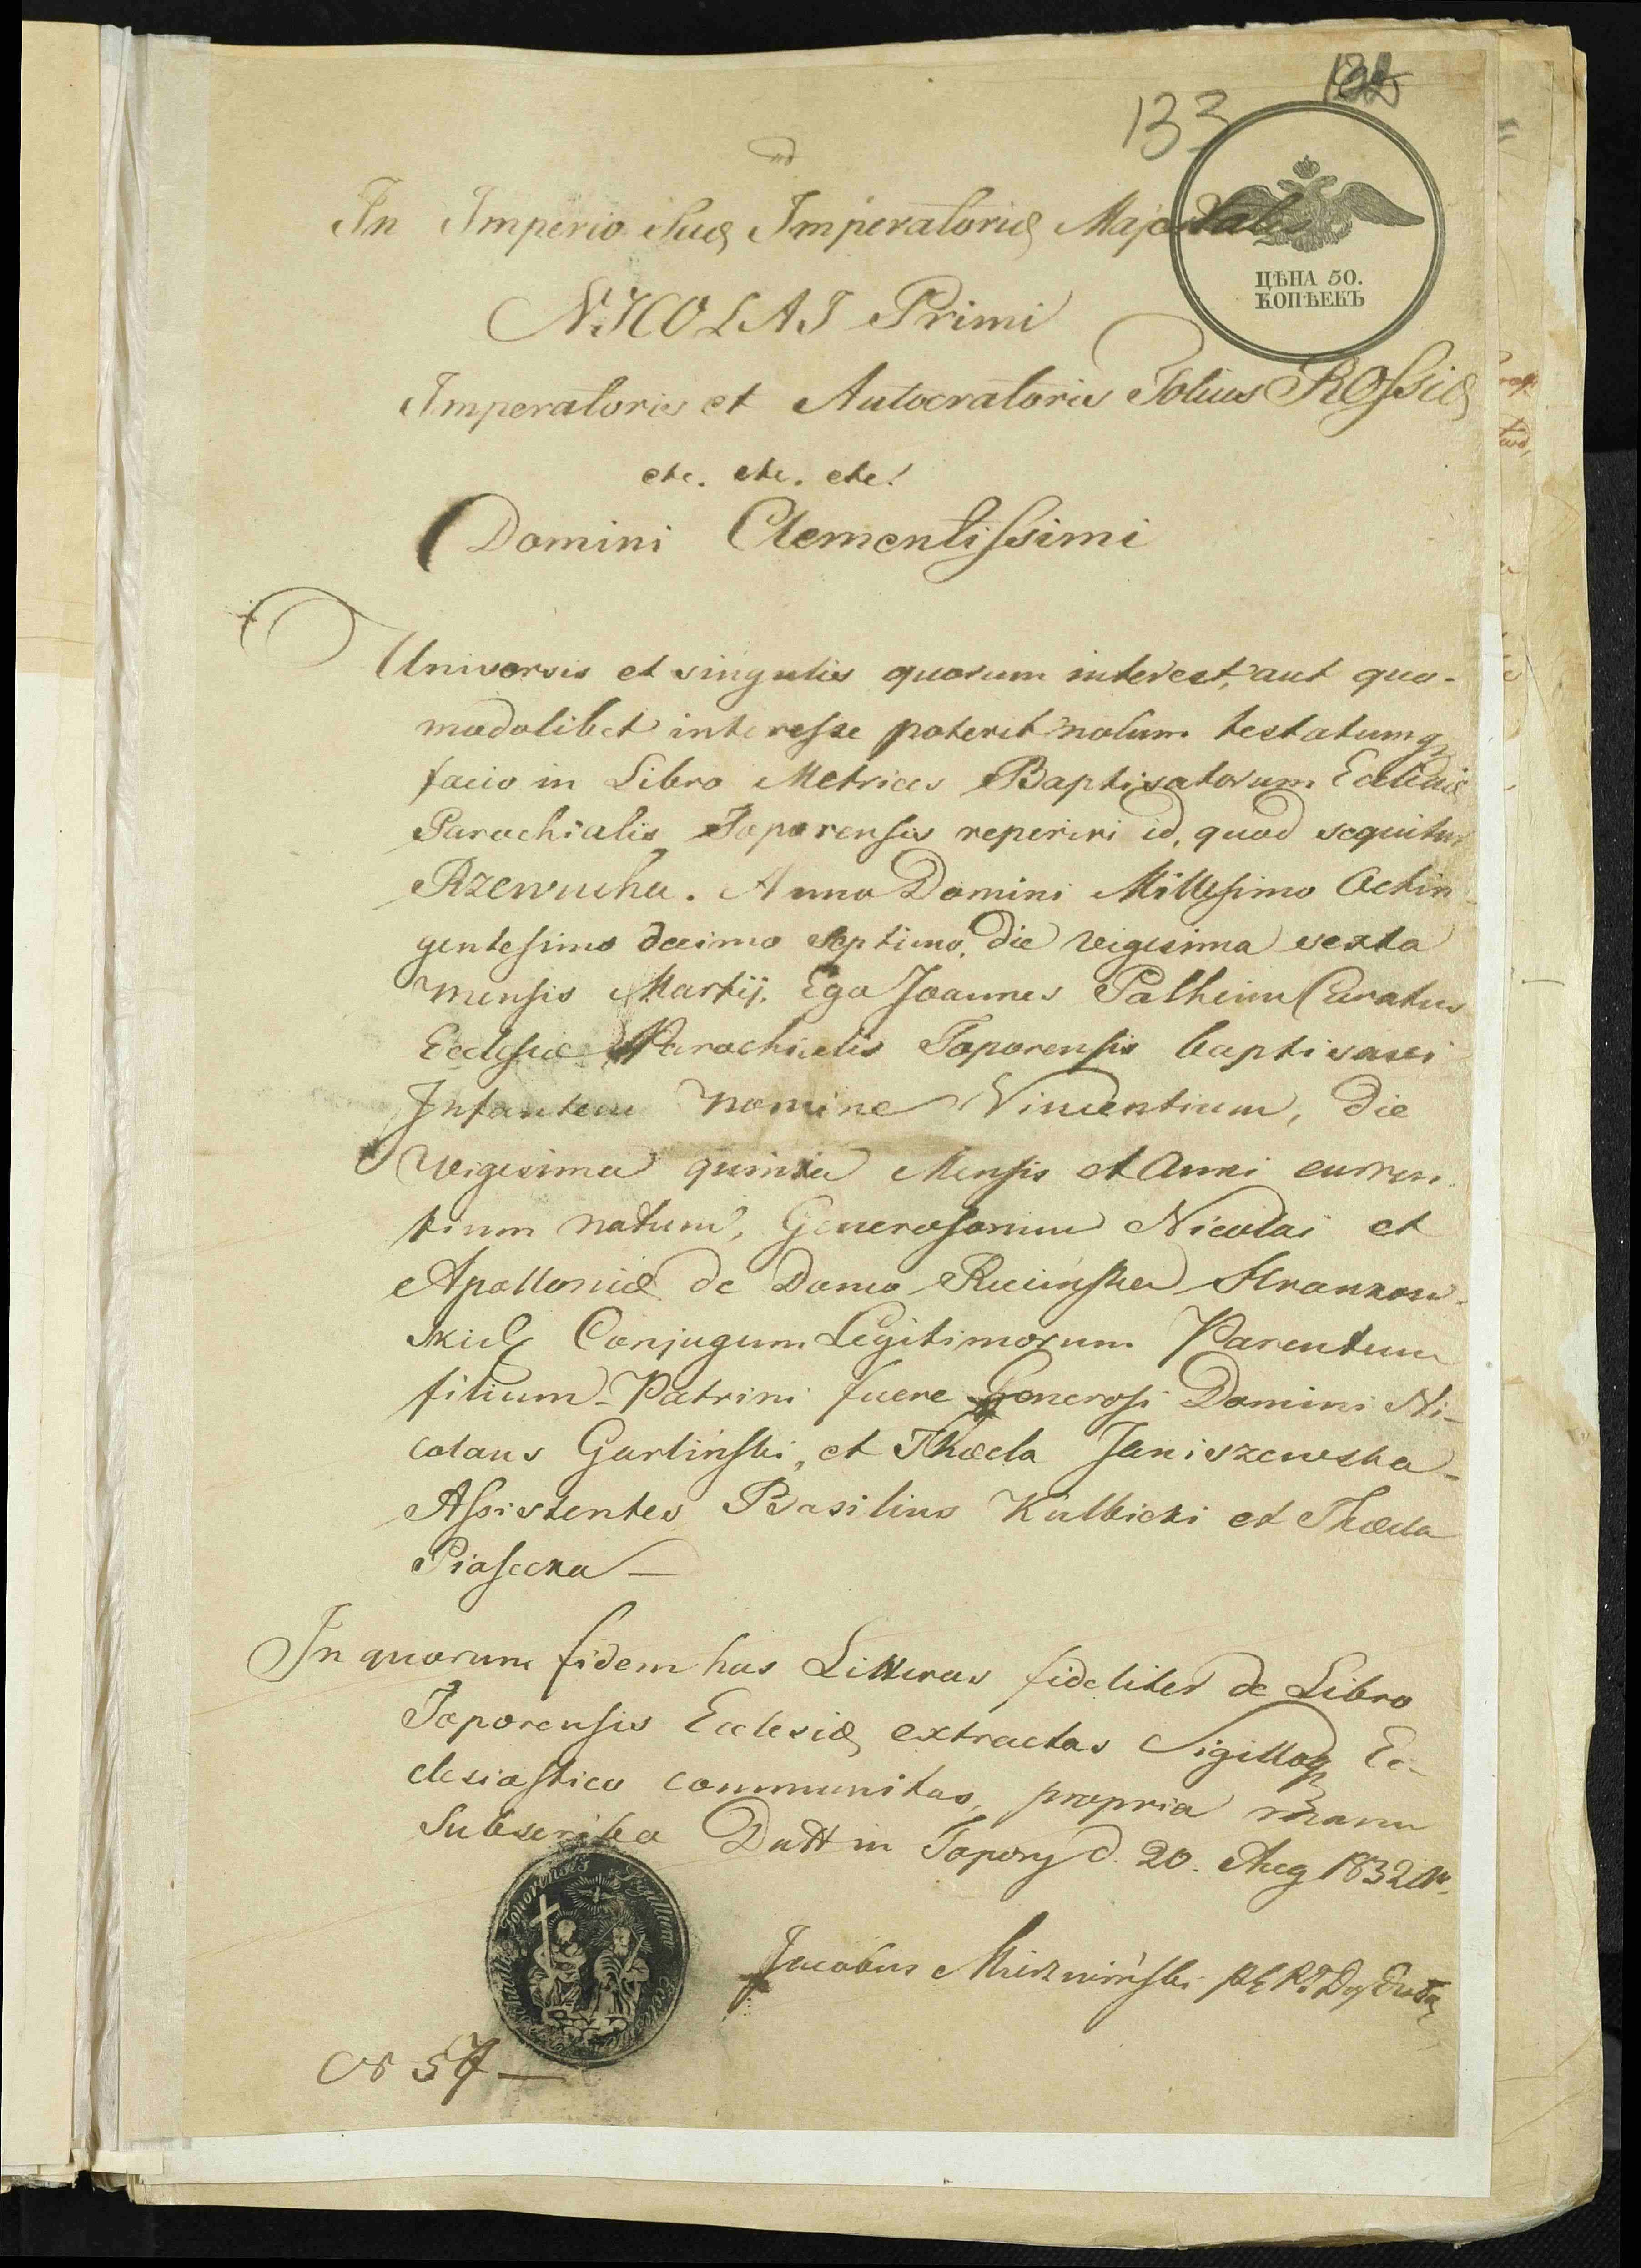 133
In Imperio Suæ Imperatoriæ Majestatis
ЦѢНА 50.
КОПѢЕКЪ
NICOLAI Primi
Imperatoris et Autocratoris Totius ROssiæ
etc. etc. etc.
Domini Clementissimi
Universis et singulis quorum interest, aut quo-
modolibet interesse poterit notum testatumq
facio in Libro Metrices Baptisatorum Ecclesiæ
Parochialis Toporensis reperiri id, quod sequitur
Rzewucha. Anno Domini Millesimo Octin
gentesimo decimo septimo, die vigesima sexta
mensis Martij. Ego Joannes Curatus
Ecclesiæ Parochialis Toporensis baptisavi
Infantem nomine Vincentium, die
vigesima quinta Mensis et Anni curren
tium natum, Generosorum Nicolai et
Apolloniæ de Domo
Conjugum Legitimorum Parentum
filium - Patrini fuere Generosi Domini Ni-
colaus Garlinski, et Thæcla Janiszewska -
Assistentes Basilius Kulbicki et Thæcla
Piasecka —
In quorum fidem has Litteras fideliter de Libro
Toporensis Ecclesiæ extractas Sigilloq Ec-
clesiastico communitas, propria manu
Subscribo Datt in Topory d. 20. Aug 1832
Toporensis Sigillum
Jacobus
N 57 —